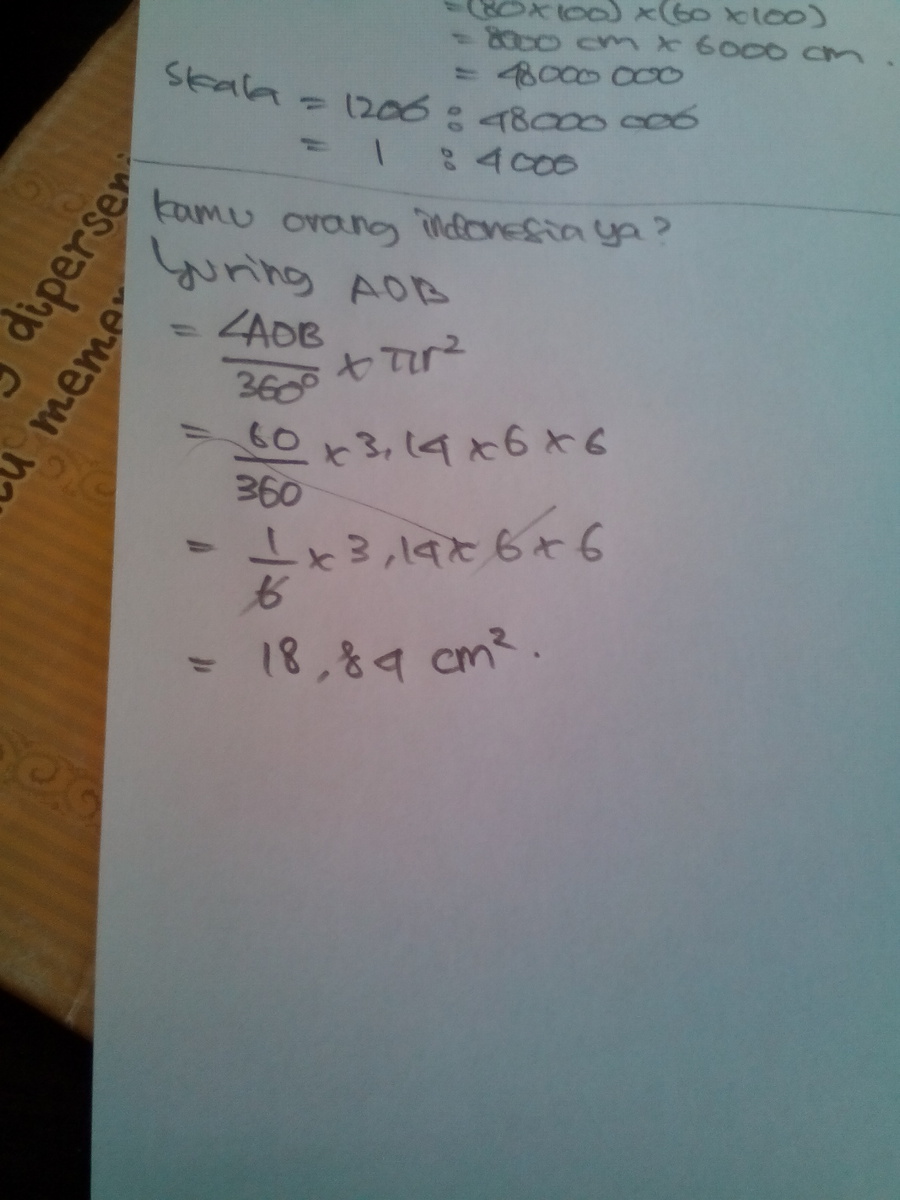 =(80x100) x(60x100)
= 8000 cm x 6000 cm.
= 48000 000
Skala = 1200 : 48000 000
= 1 : 4000
kamu orang indonesia ya?
Juring AOB
= ∠AOB/360° x πr²
= 60/360 x 3,14 x 6 x 6
= 1/6 x 3,14 x 6 x 6
= 18,84 cm².
dipersem
meme